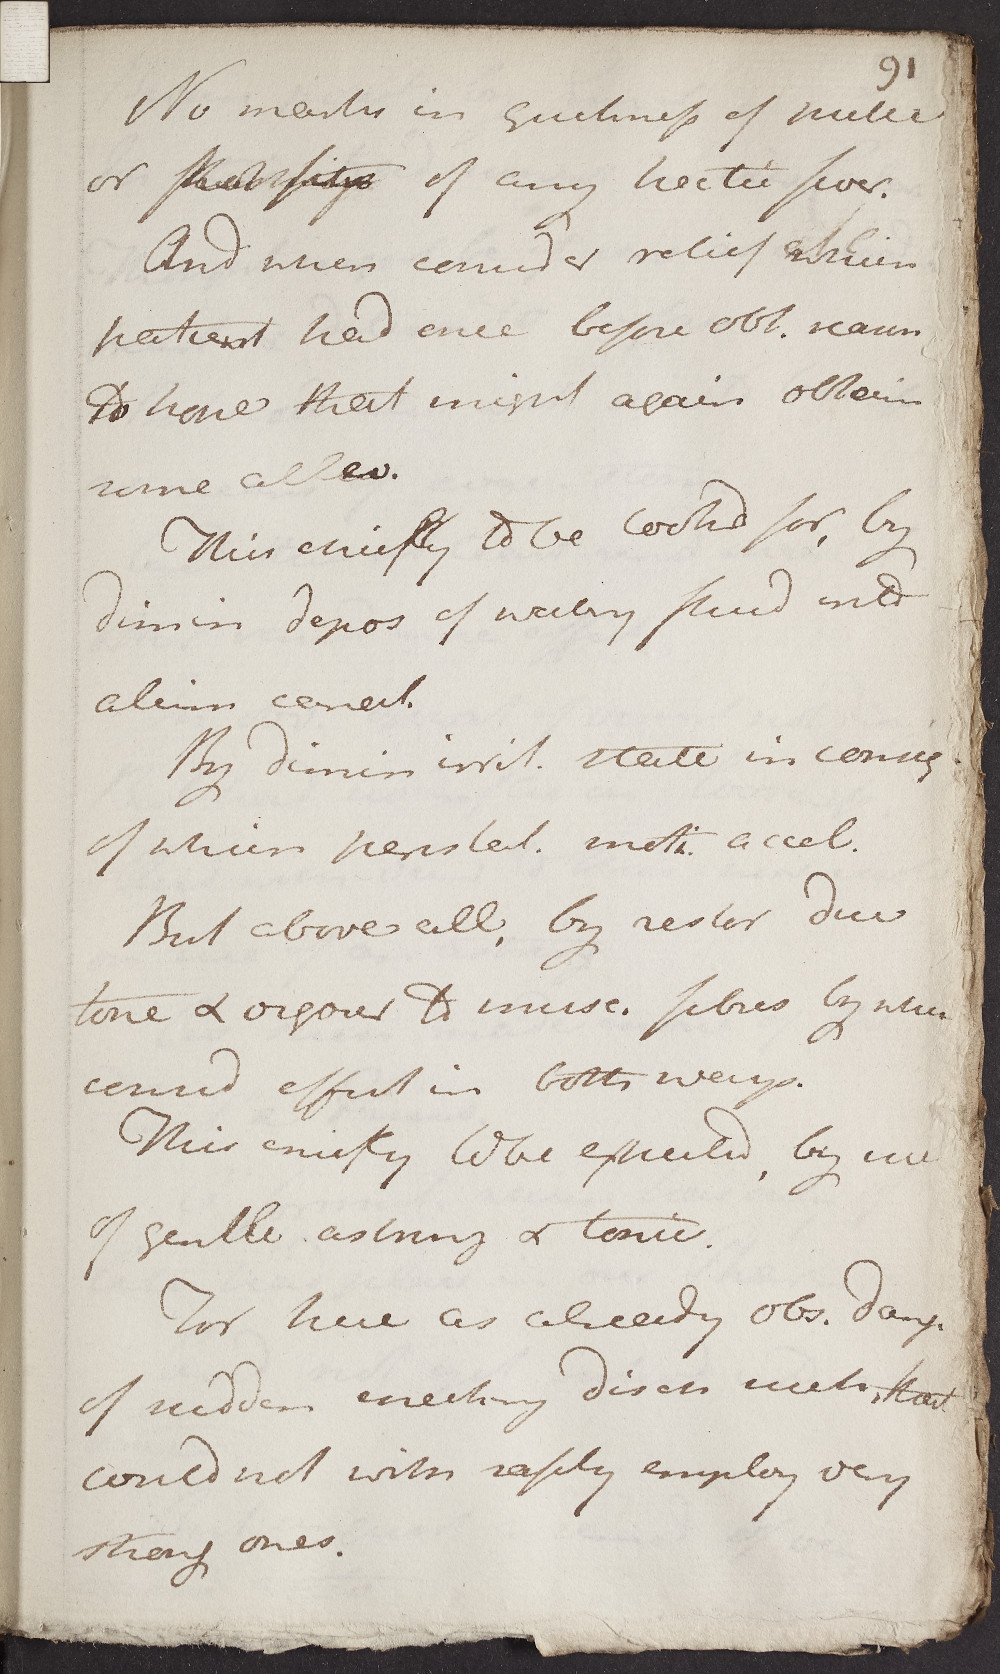 91
No marks in quickness of pulse
or of any hectic fever.
And when consider relief which
patient had once before obt. reason
to hope that might again obtain
some allev.
This chiefly to be look'd for, by
dimin depos of watery fluid into
alim canal.
By dimin irrit. state in conseq
of which peristal. moti. accel.
But above all, by restor due
tone & vigour to musc. fibres by which
consid effect in both ways.
This chiefly to be expected, by use
of gentle astring & tonic.
For here as already obs. dang.
of sudden checking disch such, that
could not with safety employ very
strong ones.